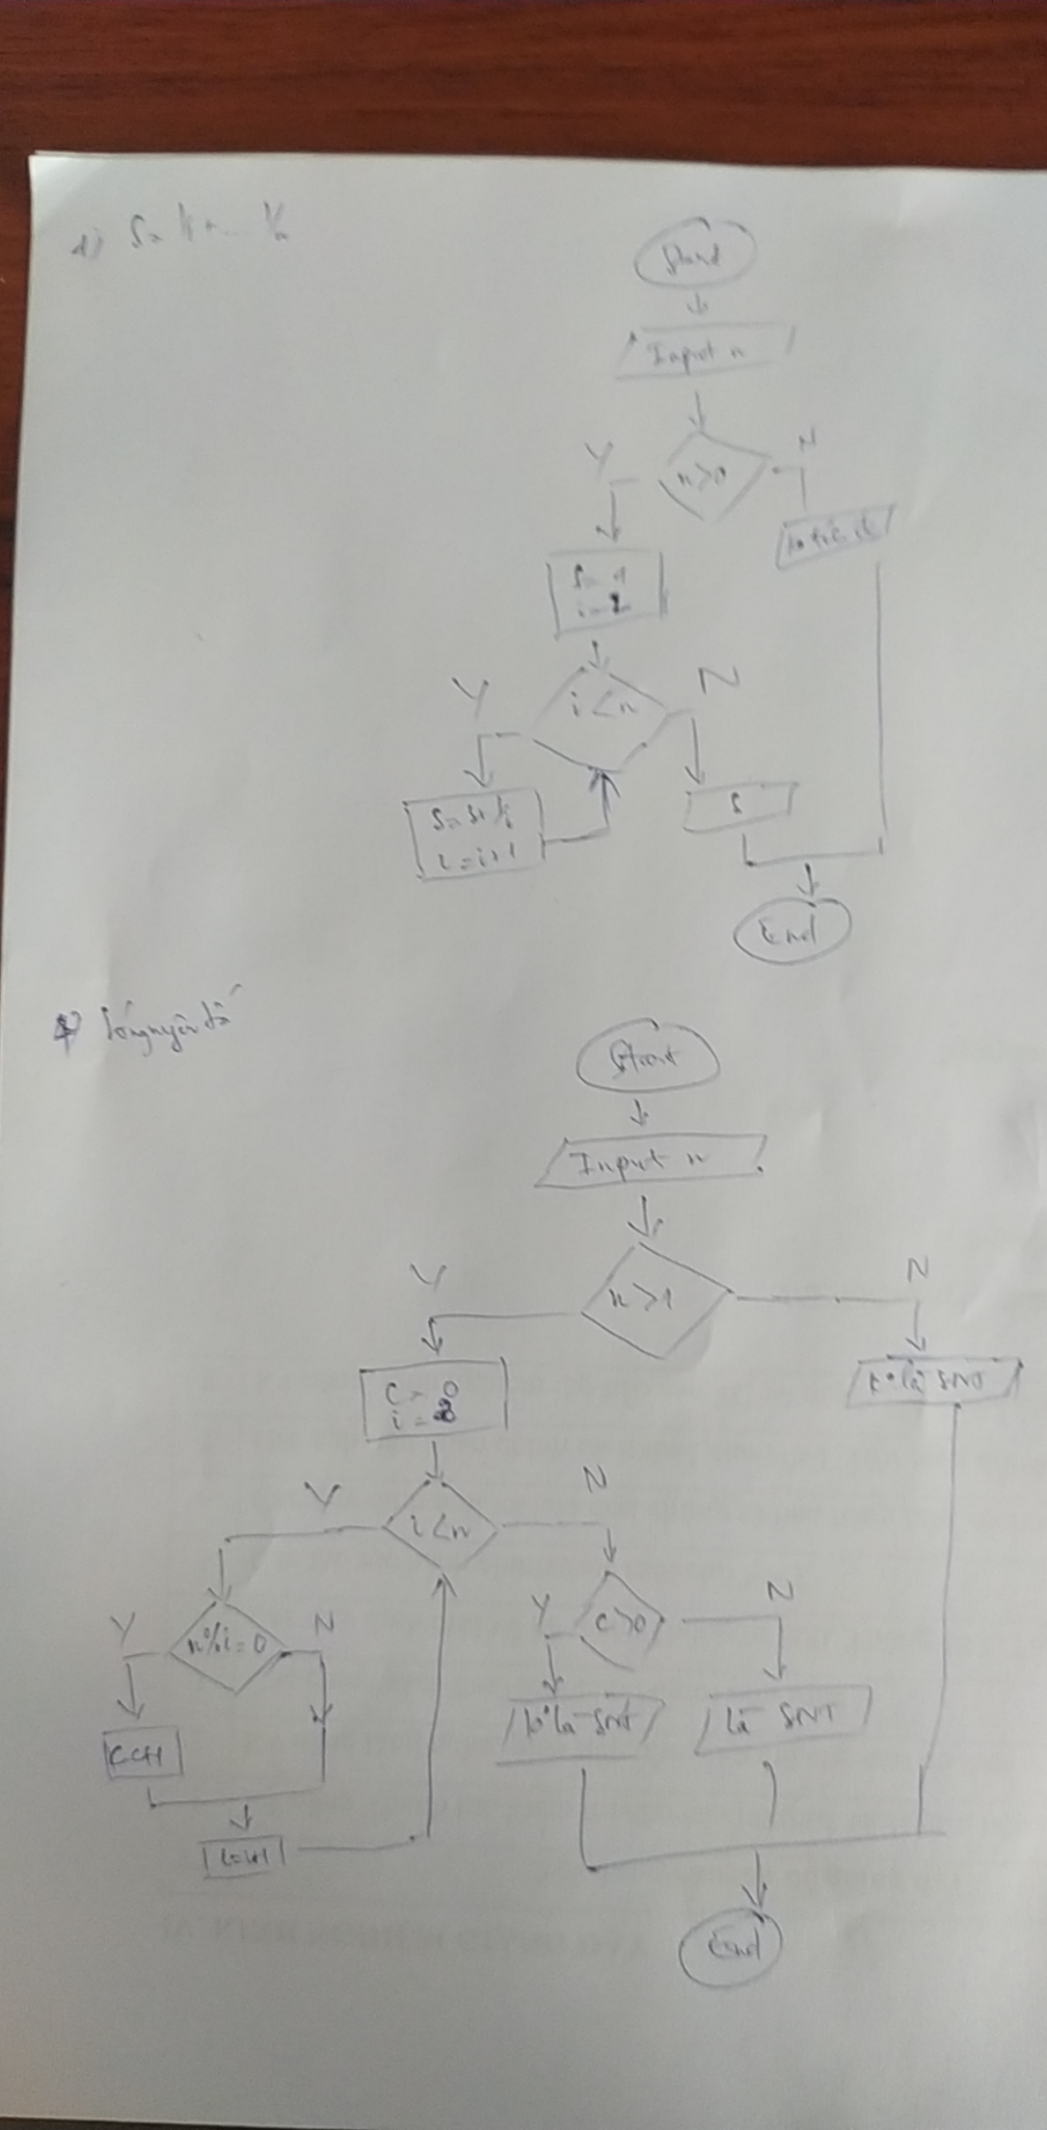 Start
Input n
n>0
Y
N
i<n
Y
N
S=S+1/i
i=i+1
S
End
Số nguyên tố
Start
Input n
n>1
Y
N
k° là SNT
i<n
Y
N
n%i=0
Y
N
c>0
Y
N
k° là SNT
là SNT
End